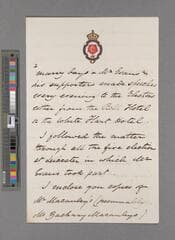 "many days & Mr Evans &
his supporters made speeches
every evening to the Electors
either from the Bell Hotel
or the White Hart Hotel.
I followed the matter
through all the five elections
at Leicester in which Mr
Evans took part.
I enclose you copies of
Mr Macaulay's (presumably
Mr Zachary Macaulay's)